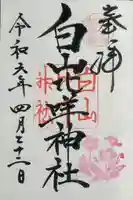 奉拝
白山比咩神社
令和六年四月二十二日